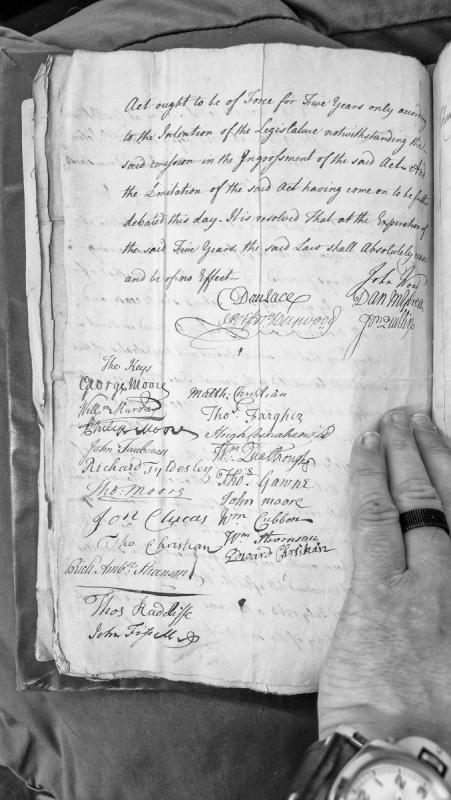 Act ought to be of Force for Five Years only according
to the Intention of the Legislature notwithstanding the
said omission in the Ingrossment of the said Act And
the Limitation of the said Act having come on to be further
debated this day It is resolved That at the Expiration of
the said Five Years the said Law shall Absolutely cease
and be of no Effect
John Wood
C Danlace
Dan Mylrea
The Keys
George Moore
Matth: Christian
Will Murray
Tho: Fargher
Philip Moore
John Taubman
Wm Qualtrough
Richard Tyldesley
Thos Gawne
Tho: Moore
John Moore
Jon Clucas
Wm Cubbon
Tho Christian
Wm Stevenson
Edward Christian
Rich Ambse Stevenson
Thos Radcliffe
John Fissell